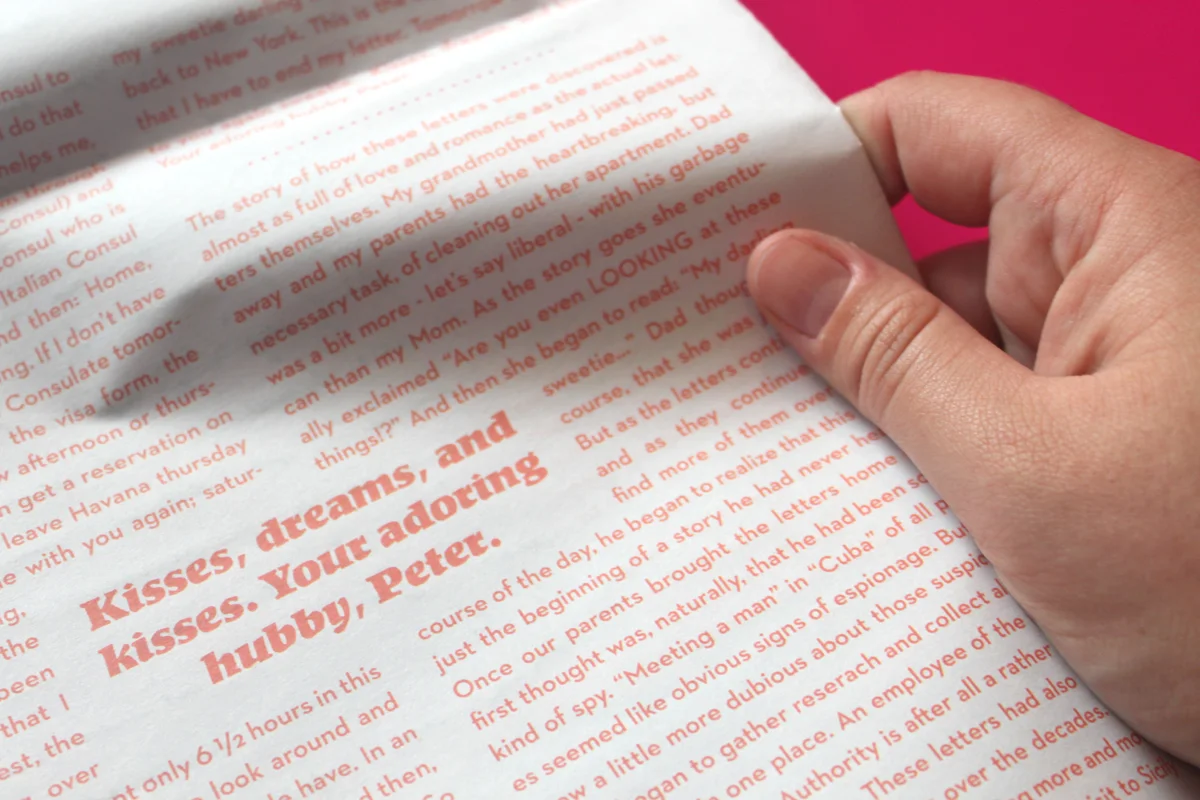 nsul to
do that
helps me,
through
Consul) and
onsul who is
Italian Consul
nd then: Home.
ng. If I don't have
Consulate tomor-
the visa form, the
w afternoon or thurs-
n get a reservation on
leave Havana thursday
e with you again; satur-
ng,
the
been
that I
est, the
over
my sweetie darling
back to New York. This is the
that I have to end my letter. Tomorrow
Your adoring hubby, Peter.
The story of how these letters were discovered is
almost as full of love and romance as the actual let-
ters themselves. My grandmother had just passed
away and my parents had the heartbreaking, but
necessary task, of cleaning out her apartment. Dad
was a bit more - let's say liberal - with his garbage
can than my Mom. As the story goes she eventu-
ally exclaimed "Are you even LOOKING at these
things!?" And then she began to read: "My darling
sweetie..." Dad thou
course, that she was
But as the letters con
and as they continue
find more of them over
Kisses, dreams, and
kisses. Your adoring
hubby, Peter.
course of the day, he began to realize that this
just the beginning of a story he had never he
Once our parents brought the letters home
first thought was, naturally, that he had been so
kind of spy. "Meeting a man" in "Cuba" of all p
es seemed like obvious signs of espionage. Bu
w a little more dubious about those suspic
gan to gather reserach and collect a
one place. An employee of the
Authority is after all a rather
These letters had also
over the decades.
ng more and mo
sit to Sicily
nt only 6 1/2 hours in this
look around and
have. In an
d then,